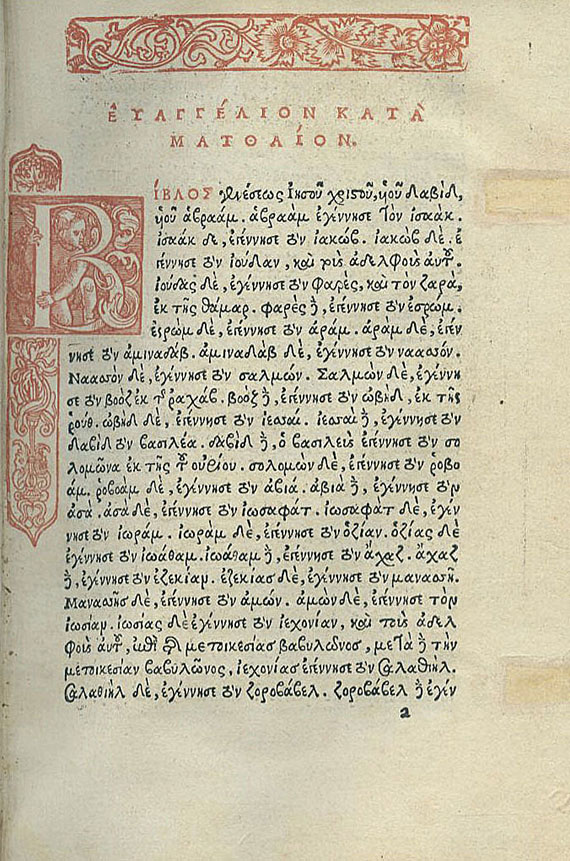 ΕΥΑΓΓΈΛΙΟΝ ΚΑΤᾺ
ΜΑΤΘΑΊΟΝ.
ΒΊΒΛΟΣ γενέσεως ἰησοῦ χριστοῦ, υἱοῦ δαβὶδ,
υἱοῦ ἀβραάμ. ἀβραὰμ ἐγέννησε τὸν ἰσαάκ.
ἰσαὰκ δὲ, ἐγέννησε τὸν ἰακώβ. ἰακὼβ δὲ. ἐ
γέννησε τὸν ἰούδαν, καὶ τοὺς ἀδελφοὺς αὐτοῦ.
ἰούδας δὲ, ἐγέννησε τὸν φαρὲς, καὶ τὸν ζαρὰ,
ἐκ τῆς θάμαρ. φαρὲς δὲ, ἐγέννησε τὸν ἐσρώμ.
ἐσρὼμ δὲ, ἐγέννησε τὸν ἀράμ. ἀρὰμ δὲ, ἐγέν
νησε τὸν ἀμιναδάβ. ἀμιναδὰβ δὲ, ἐγέννησε τὸν ναασσόν.
Ναασσὸν δὲ, ἐγέννησε τὸν σαλμών. Σαλμὼν δὲ, ἐγέννη
σε τὸν βοὸζ ἐκ τῆς ραχάβ. βοὸζ δὲ, ἐγέννησε τὸν ὠβὴδ, ἐκ τῆς
ῥούθ. ὠβὴδ δὲ, ἐγέννησε τὸν ἰεσσαί. ἰεσσαὶ δὲ, ἐγέννησε τὸν
δαβὶδ τὸν βασιλέα. δαβὶδ δὲ, ὁ βασιλεὺς ἐγέννησε τὸν σο
λομῶνα ἐκ τῆς τοῦ οὐρίου. σολομὼν δὲ, ἐγέννησε τὸν ῥοβο
άμ. ῥοβοὰμ δὲ, ἐγέννησε τὸν ἀβιά. ἀβιὰ δὲ, ἐγέννησε τὸν
ἀσά. ἀσὰ δὲ, ἐγέννησε τὸν ἰωσαφάτ. ἰωσαφὰτ δὲ, ἐγέν
νησε τὸν ἰωράμ. ἰωρὰμ δὲ, ἐγέννησε τὸν ὀζίαν. ὀζίας δὲ
ἐγέννησε τὸν ἰωάθαμ. ἰωάθαμ δὲ, ἐγέννησε τὸν ἄχαζ. ἄχαζ
δὲ, ἐγέννησε τὸν ἐζεκίαν. ἐζεκίας δὲ, ἐγέννησε τὸν μανασσῆ.
Μανασσῆς δὲ, ἐγέννησε τὸν ἀμών. ἀμὼν δὲ, ἐγέννησε τὸν
ἰωσίαν. ἰωσίας δὲ ἐγέννησε τὸν ἰεχονίαν, καὶ τοὺς ἀδελ
φοὺς αὐτοῦ, ἐπὶ τῆς μετοικεσίας βαβυλῶνος, μετὰ δὲ τὴν
μετοικεσίαν βαβυλῶνος, ἰεχονίας ἐγέννησε τὸν Σαλαθιήλ.
Σαλαθιὴλ δὲ, ἐγέννησε τὸν ζοροβάβελ. ζοροβάβελ δὲ ἐγέν
a